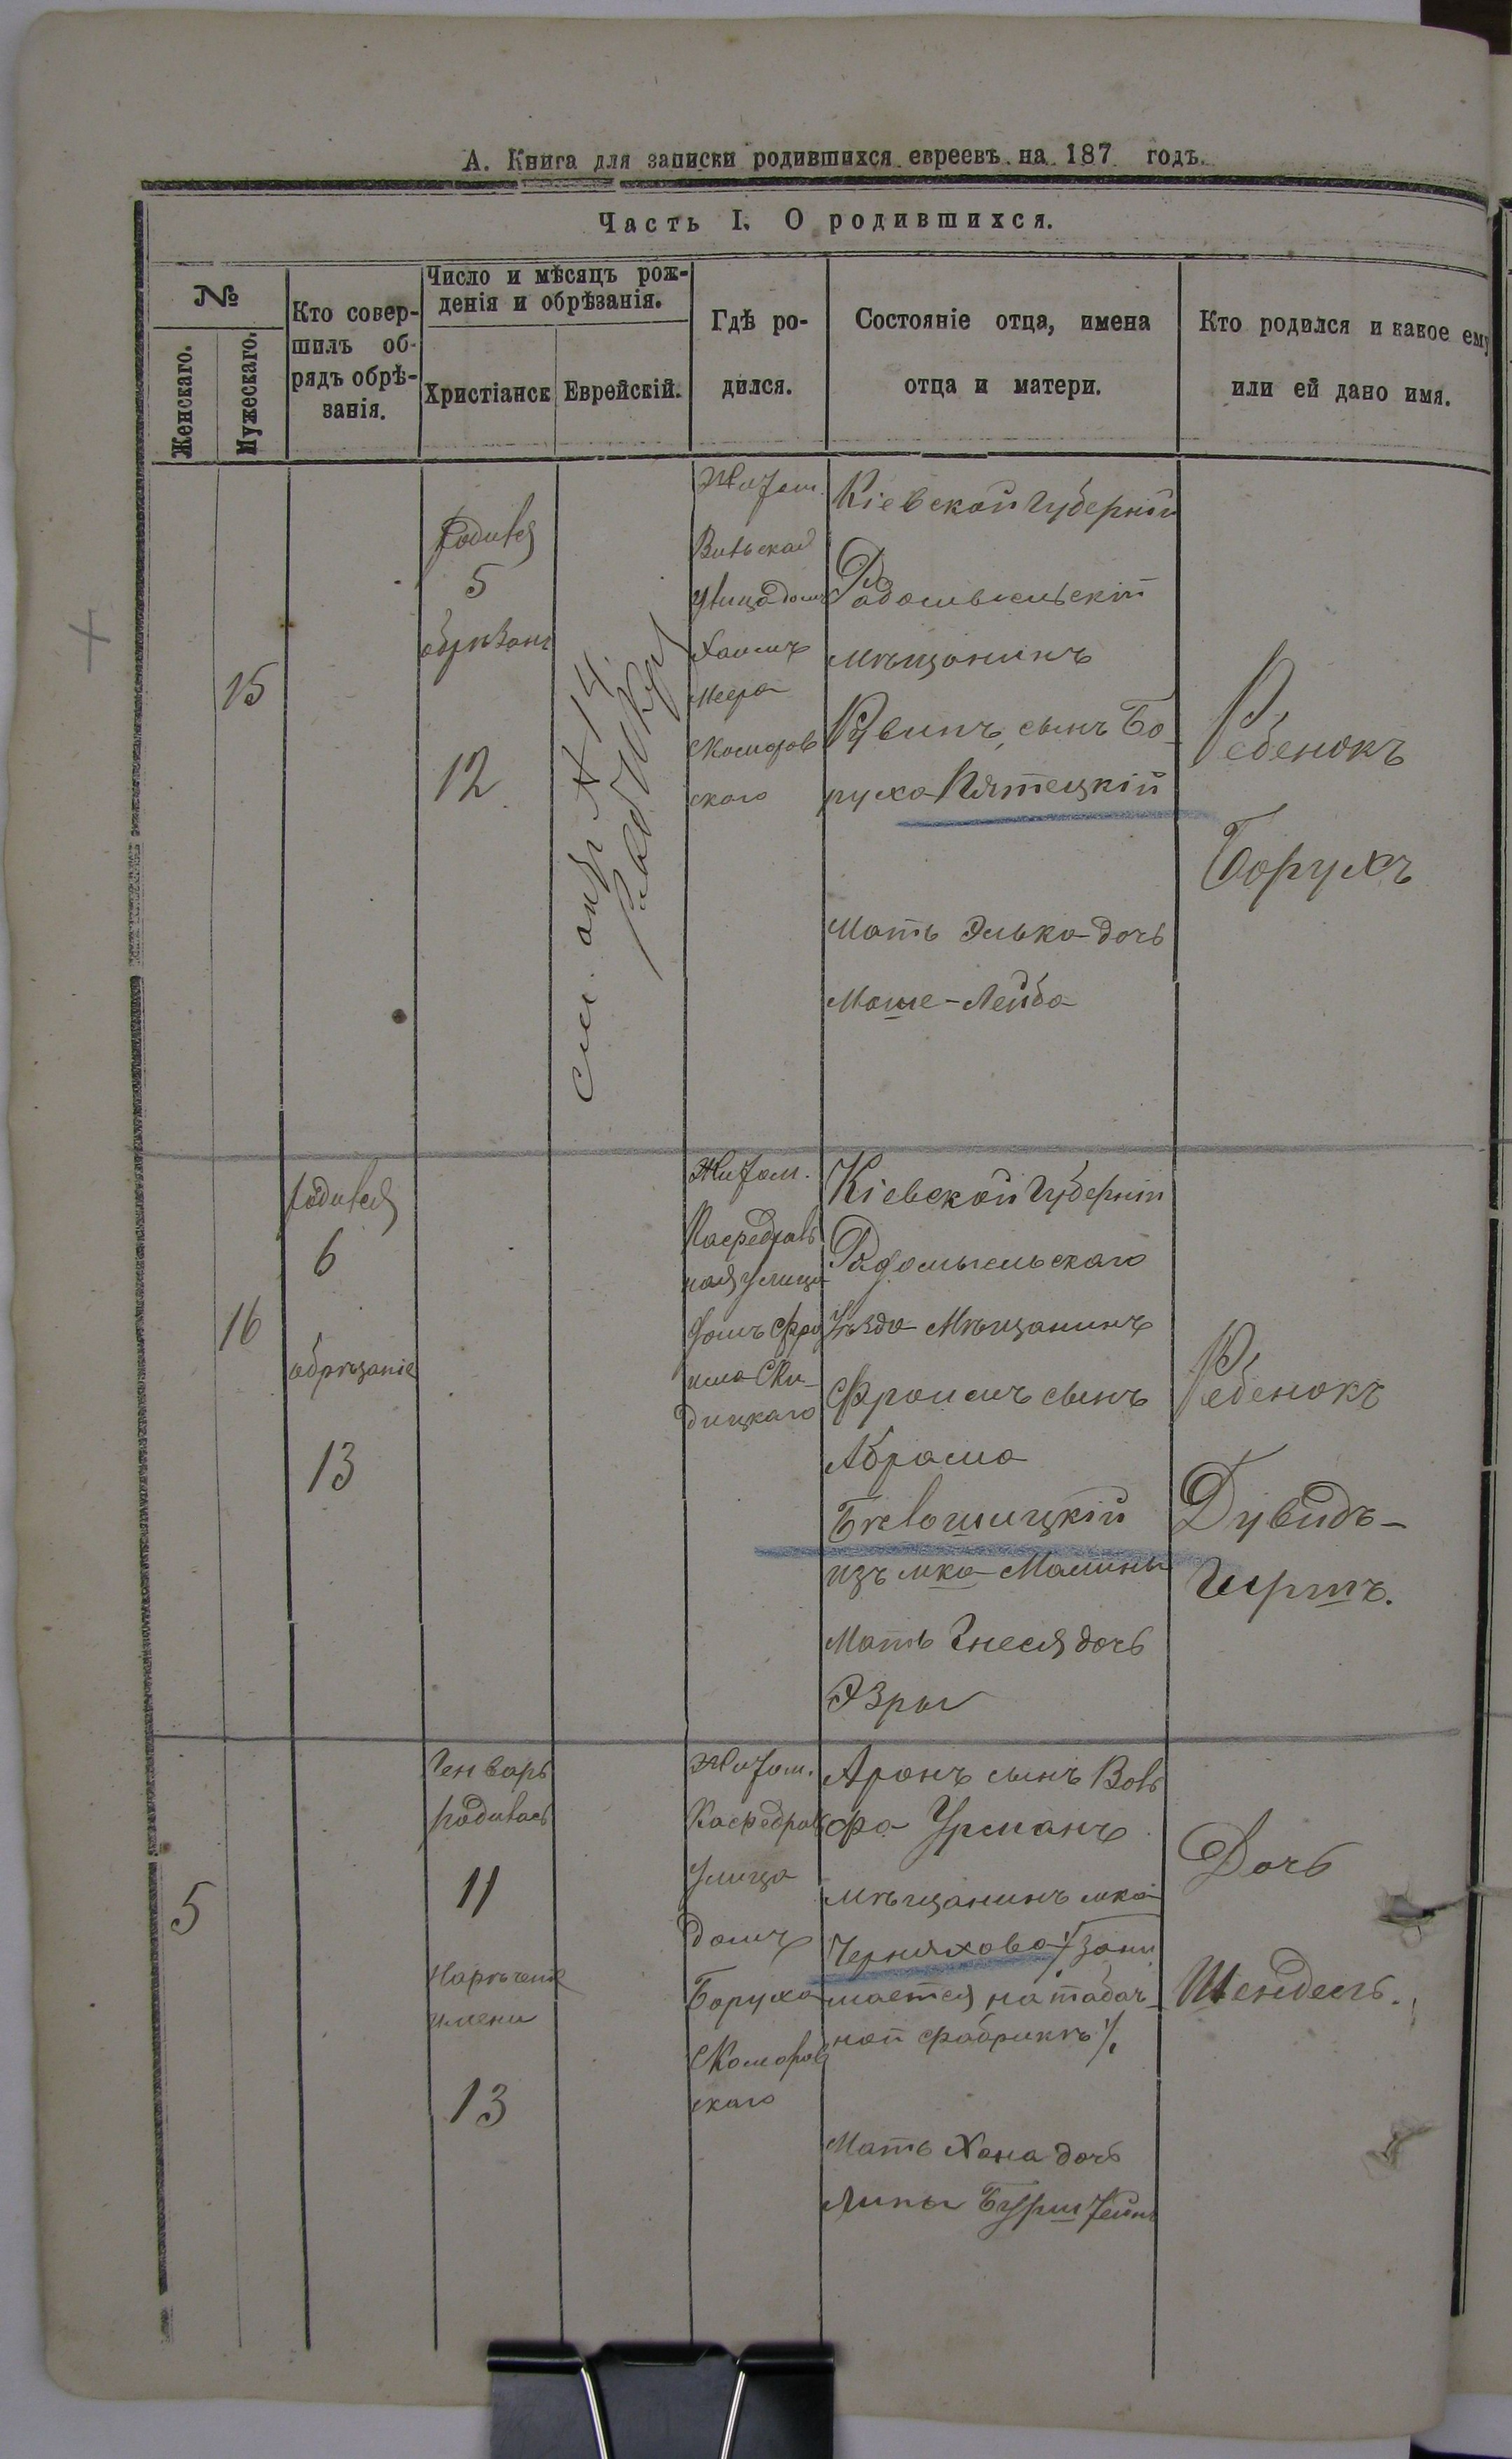 А. Книга для записки родившихся евреевъ на 187 годъ.
Часть I. О родившихся.
№
Женскаго.
Мужескаго.
Кто совер-
шилъ об-
рядъ обрѣ-
занія.
Число и мѣсяцъ рож-
денія и обрѣзанія.
Христіанск
Еврейскій.
Гдѣ ро-
дился.
Состояніе отца, имена
отца и матери.
Кто родился и какое ему
или ей дано имя.
15
Родился
5
обрѣзанъ
12
См. акт
Житом.
Вильская
улица домъ
Хаимъ
Меера
Скоморов
скаго
Кіевской Губерніи
Радомысльскій
мѣщанинъ
Рувинъ, сынъ Бо-
руха Пятецкій
Мать Элька дочь
Моше-Лейба
Ребенокъ
Борухъ
16
родился
6
обрѣзаніе
13
Житом.
Кафедраль
ная улица
домъ Фро
има Ски-
дицкаго
Кіевской Губерніи
Радомысльскаго
Уѣзда Мѣщанинъ
Фроимъ сынъ
Абрама
изъ мка Малины
Мать Гнеся дочь
Эзры
Ребенокъ
Дувидъ-
Гиршъ.
5
Генварь
родилась
11
Нарѣченіе
имени
13
Житом.
Кафедрал
улица
домъ
Боруха
Скоморов
скаго
Аронъ сынъ Воль
фа Урманъ
мѣщанинъ мка
Черняхова /зани
мается на табач-
ной фабрикѣ/.
Мать Хана дочь
Липы Бурштейнъ
Дочь
Шендель.